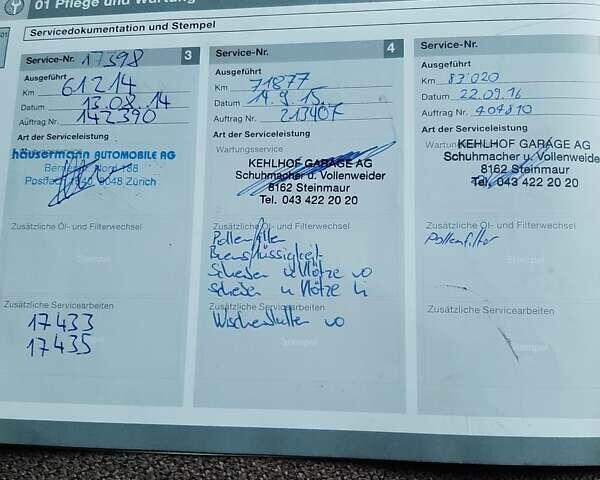 01 Pflege und Wartung
01
Servicedokumentation und Stempel
Service-Nr. 17398 3
Ausgeführt
Km 61214
Datum 13.08.14
Auftrag Nr. 142390
Art der Serviceleistung
häusermann AUTOMOBILE AG
8048 Zürich
Zusätzliche Öl- und Filterwechsel
Stempel
Zusätzliche Servicearbeiten
17433
17435
Service-Nr. 4
Ausgeführt
Km 71877
Datum 14.9.15
Auftrag Nr. 213407
Art der Serviceleistung
Wartungsservice
KEHLHOF GARAGE AG
Schuhmacher u. Vollenweider
8162 Steinmaur
Tel. 043 422 20 20
Zusätzliche Öl- und Filterwechsel
Pollenfilter
Bremsflüssigkeit
Scheiben u Klötze vo
Scheiben u Klötze hi
Zusätzliche Servicearbeiten
Wischerblätter vo
Stempel
Service-Nr.
Ausgeführt
Km 83020
Datum 22.09.16
Auftrag Nr. 404810
Art der Serviceleistung
KEHLHOF GARAGE AG
Schuhmacher u. Vollenweide
8162 Steinmaur
Tel. 043 422 20 20
Zusätzliche Öl- und Filterwechsel
Pollenfilter
Zusätzliche Servicearbeiten
Stempel